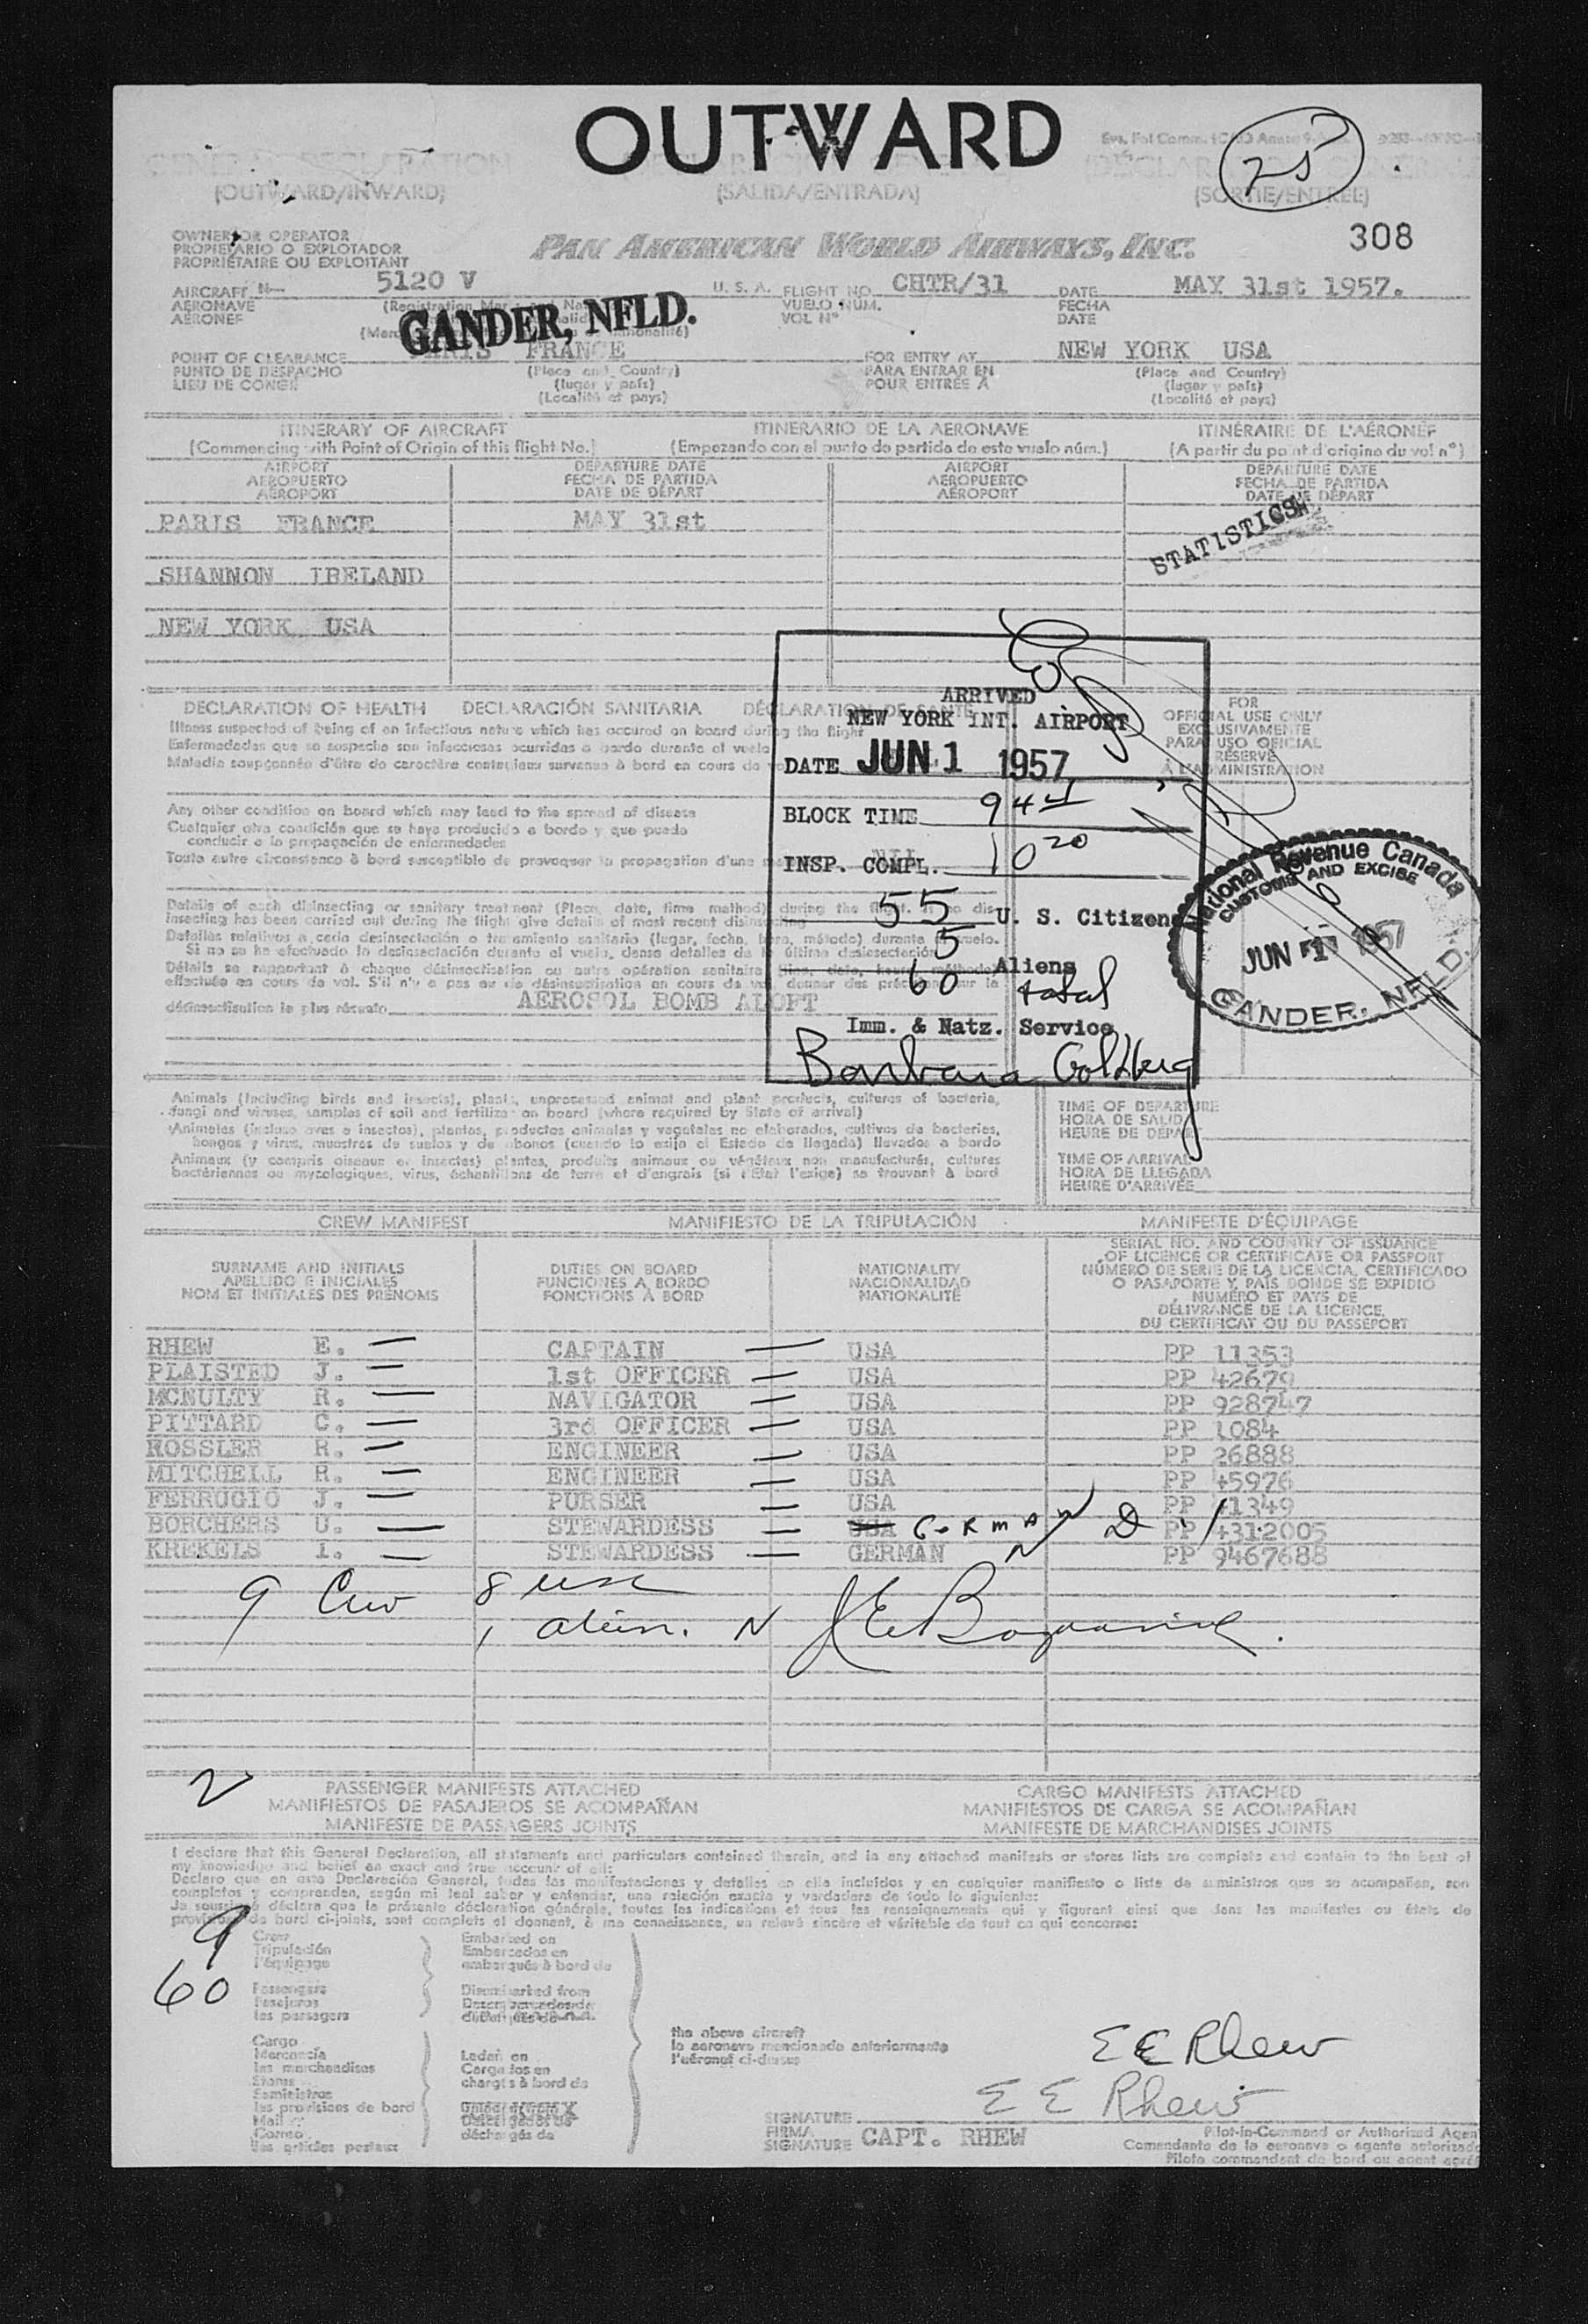 OUTWARD
25
(OUTWARD/INWARD) (SALIDA/ENTRADA) (SORTIE/ENTRÉE)
308
OWNER OR OPERATOR
PROPIETARIO O EXPLOTADOR
PROPRIÉTAIRE OU EXPLOITANT
PAN AMERICAN WORLD AIRWAYS, INC.
AIRCRAFT 5120 V U. S. A. FLIGHT NO. CHTR/31 DATE MAY 31st 1957.
AERONAVE VUELO NÚM. FECHA
AÉRONEF VOL Nº DATE
GANDER, NFLD.
POINT OF CLEARANCE PARIS FRANCE FOR ENTRY AT NEW YORK USA
PUNTO DE DESPACHO (Place and Country) PARA ENTRAR EN (Place and Country)
LIEU DE CONGÉ (lugar y país) POUR ENTRÉE À (lugar y país)
(Localité et pays) (Localité et pays)
ITINERARY OF AIRCRAFT ITINERARIO DE LA AERONAVE ITINÉRAIRE DE L'AÉRONEF
(Commencing with Point of Origin of this flight No.) (Empezando con el punto de partida de este vuelo núm.) (A partir du point d'origine du vol nº)
AIRPORT DEPARTURE DATE AIRPORT DEPARTURE DATE
AEROPUERTO FECHA DE PARTIDA AEROPUERTO FECHA DE PARTIDA
AÉROPORT DATE DE DÉPART AÉROPORT DATE DE DÉPART
PARIS FRANCE MAY 31st
STATISTICS
SHANNON IRELAND
NEW YORK USA
DECLARATION OF HEALTH DECLARACIÓN SANITARIA DÉCLARATION DE SANTÉ
FOR
OFFICIAL USE ONLY
EXCLUSIVAMENTE
PARA USO OFICIAL
RÉSERVÉ
À L'ADMINISTRATION
Illness suspected of being of an infectious nature which has occured on board during the flight
Enfermedades que se sospecha son infecciosas ocurridas a bordo durante el vuelo
Maladie soupçonnée d'être de caractère contagieux survenue à bord en cours de
Any other condition on board which may lead to the spread of disease
Cualquier otra condición que se haya producido a bordo y que pueda
conducir a la propagación de enfermedades
Toute autre circonstance à bord susceptible de provoquer la propagation d'une
NIL
Details of each disinsecting or sanitary treatment (Place, date, time method) during the flight. If no dis-
insecting has been carried out during the flight give details of most recent disinsecting
Detalles relativos a cada desinsectación o tratamiento sanitario (lugar, fecha, hora, método) durante el vuelo.
Si no se ha efectuado la desinsectación durante el vuelo, dense detalles de la última desinsectación
Détails se rapportant à chaque désinsectisation ou autre opération sanitaire (lieu, date, heure, méthode)
effectuée en cours de vol. S'il n'y a pas eu de désinsectisation en cours de vol, donner des précisions sur la
désinsectisation la plus récente AEROSOL BOMB ALOFT
ARRIVED
NEW YORK INT. AIRPORT
DATE JUN 1 1957
BLOCK TIME
INSP. COMPL. 10 20
55 U. S. Citizens
5 Aliens
60 total
Imm. & Natz. Service
Barbara Goldberg
National Revenue Canada
CUSTOMS AND EXCISE
JUN 1 1957
GANDER, NFLD.
Animals (including birds and insects), plants, unprocessed animal and plant products, cultures of bacteria,
fungi and viruses, samples of soil and fertilizer on board (where required by State of arrival)
Animales (incluso aves e insectos), plantas, productos animales y vegetales no elaborados, cultivos de bacterias,
hongos y virus, muestras de suelos y de abonos (cuando lo exija el Estado de llegada) llevados a bordo
Animaux (y compris oiseaux et insectes) plantes, produits animaux ou végétaux non manufacturés, cultures
bactériennes ou mycologiques, virus, échantillons de terre et d'engrais (si l'État l'exige) se trouvant à bord
TIME OF DEPARTURE
HORA DE SALIDA
HEURE DE DÉPART
TIME OF ARRIVAL
HORA DE LLEGADA
HEURE D'ARRIVÉE
CREW MANIFEST MANIFIESTO DE LA TRIPULACIÓN MANIFESTE D'ÉQUIPAGE
SURNAME AND INITIALS DUTIES ON BOARD NATIONALITY
APELLIDO E INICIALES FUNCIONES A BORDO NACIONALIDAD
NOM ET INITIALES DES PRÉNOMS FONCTIONS À BORD NATIONALITÉ
SERIAL NO. AND COUNTRY OF ISSUANCE
OF LICENCE OR CERTIFICATE OR PASSPORT
NÚMERO DE SERIE DE LA LICENCIA, CERTIFICADO
O PASAPORTE Y PAÍS DONDE SE EXPIDIÓ
NUMÉRO ET PAYS DE
DÉLIVRANCE DE LA LICENCE,
DU CERTIFICAT OU DU PASSEPORT
RHEW E. CAPTAIN USA PP 11353
PLAISTED J. 1st OFFICER USA PP 42679
MCNULTY R. NAVIGATOR USA PP 928747
PITTARD C. 3rd OFFICER USA PP 1084
ROSSLER R. ENGINEER USA PP 26888
MITCHELL R. ENGINEER USA PP 45976
FERRUGIO J. PURSER USA PP 41349
BORCHERS U. STEWARDESS USA GERMAN D PP 4312005
KREKELS I. STEWARDESS GERMAN N PP 9467688
9 Crew 8 usc
1 alien. N
2
PASSENGER MANIFESTS ATTACHED CARGO MANIFESTS ATTACHED
MANIFIESTOS DE PASAJEROS SE ACOMPAÑAN MANIFIESTOS DE CARGA SE ACOMPAÑAN
MANIFESTE DE PASSAGERS JOINTS MANIFESTE DE MARCHANDISES JOINTS
I declare that this General Declaration, all statements and particulars contained therein, and in any attached manifests or stores lists are complete and contain to the best of
my knowledge and belief an exact and true account of all:
Declaro que en esta Declaración General, todas las manifestaciones y detalles en ella incluidos y en cualquier manifiesto o lista de suministros que se acompañen, son
completos y comprenden, según mi leal saber y entender, una relación exacta y verdadera de todo lo siguiente:
Je soussigné déclare que la présente déclaration générale, toutes les indications et tous les renseignements qui y figurent ainsi que dans les manifestes ou états de
provisions de bord ci-joints, sont complets et donnent, à ma connaissance, un relevé sincère et véritable de tout ce qui concerne:
9
Crew Embarked on
Tripulación Embarcados en
l'équipage embarqués à bord de
60
Passengers Disembarked from
Pasajeros Desembarcados de
les passagers
Cargo
Mercancía Laden on
les marchandises Cargados en
Stores chargés à bord de
Suministros
les provisions de bord
Mail
Correo déchargés de
les articles postaux
the above aircraft
la aeronave mencionada anteriormente
l'aéronef ci-dessus
E E Rhew
E E Rhew
SIGNATURE
FIRMA
SIGNATURE CAPT. RHEW
Pilot-in-Command or Authorized Agen
Comandante de la aeronave o agente autorizado
Pilote commandant de bord ou agent agréé